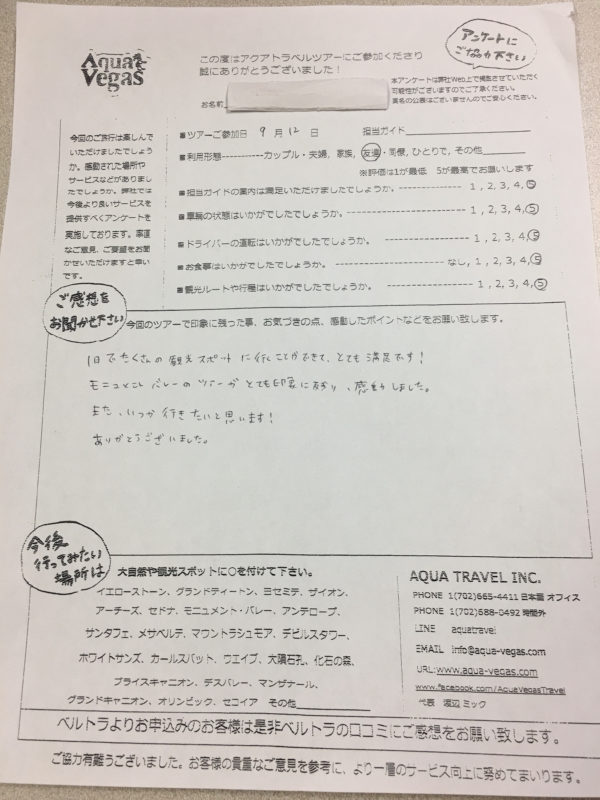 アンケートに
ご協力下さい
Aqua
Vegas
この度はアクアトラベルツアーにご参加くださり
誠にありがとうございました！
本アンケートは弊社Web上で掲載させていただく
可能性がございますのでご了承ください。
実名の公表はございませんのでご安心ください。
お名前
今回のご旅行は楽しんで
いただけましたでしょう
か。感動された場所や
サービスなどがありまし
たでしょうか。弊社では
今後より良いサービスを
提供すべくアンケートを
実施しております。率直
なご意見、ご要望をお聞
かせいただけますと幸い
です。
■ツアーご参加日 9 月 12 日 担当ガイド
■利用形態-----------カップル・夫婦, 家族, 友達・同僚, ひとりで, その他
※評価は1が最低 5が最高でお願いします
■担当ガイドの案内は満足いただけましたでしょうか。 ---------------- 1, 2, 3, 4, 5
■車輌の状態はいかがでしたでしょうか。------------------------- 1, 2, 3, 4, 5
■ドライバーの運転はいかがでしたでしょうか。 -------------------- 1, 2, 3, 4, 5
■お食事はいかがでしたでしょうか。 ----------------------- なし, 1, 2, 3, 4, 5
■観光ルートや行程はいかがでしたでしょうか。-------------------- 1, 2, 3, 4, 5
ご感想を
お聞かせ下さい
今回のツアーで印象に残った事、お気づきの点、感動したポイントなどをお願い致します。
1日でたくさんの観光スポットに行くことができて、とても満足です！
モニュメントバレーのツアーがとても印象に残り、感動しました。
また、いつか行きたいと思います！
ありがとうございました。
今後
行ってみたい
場所は
大自然や観光スポットに○を付けて下さい。
イエローストーン、グランドティートン、ヨセミテ、ザイオン、
アーチーズ、セドナ、モニュメント・バレー、アンテロープ、
サンタフェ、メサベルデ、マウントラシュモア、デビルスタワー、
ホワイトサンズ、カールスバット、ウエイブ、大隕石孔、化石の森、
ブライスキャニオン、デスバレー、マンザナール、
グランドキャニオン、オリンピック、セコイア その他
AQUA TRAVEL INC.
PHONE 1(702)665-4411 日本語 オフィス
PHONE 1(702)688-0492 時間外
LINE aquatravel
EMAIL info@aqua-vegas.com
URL: www.aqua-vegas.com
www.facebook.com/AquaVegasTravel
代表 渡辺 ミック
ベルトラよりお申込みのお客様は是非ベルトラの口コミにご感想をお願い致します。
ご協力有難うございました。お客様の貴重なご意見を参考に、より一層のサービス向上に努めてまいります。